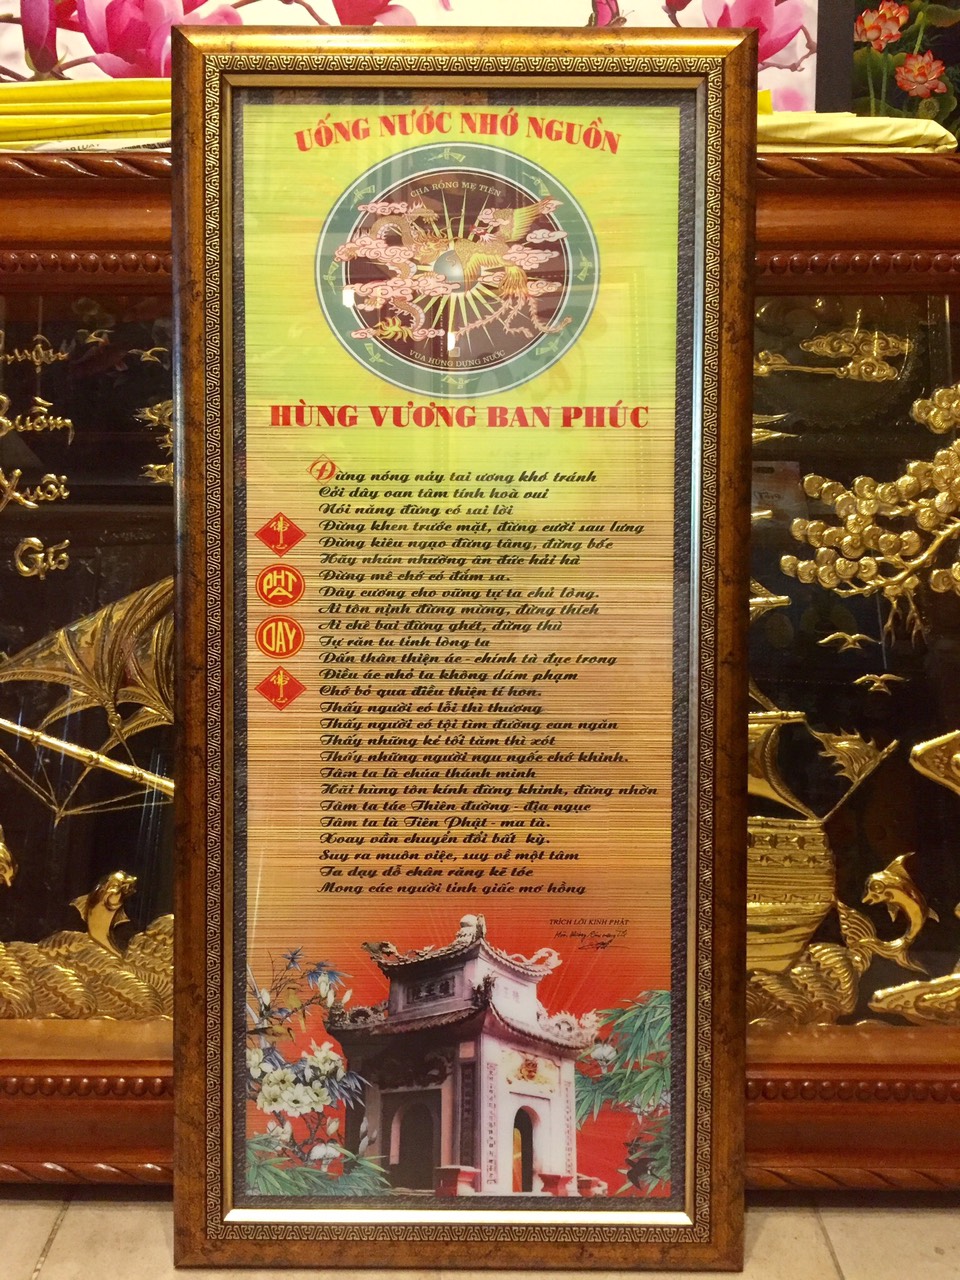 UỐNG NƯỚC NHỚ NGUỒN
CHA RỒNG MẸ TIÊN
VUA HÙNG DỰNG NƯỚC
HÙNG VƯƠNG BAN PHÚC
Đừng nóng nảy tai ương khó tránh
Cởi dây oan tâm tính hoà vui
Nói năng đừng có sai lời
Đừng khen trước mặt, đừng cười sau lưng
Đừng kiêu ngạo đừng tâng, đừng bốc
Hãy nhún nhường ân đức hải hà
Đừng mê chớ có đắm sa.
Dây cương cho vững tự ta chủ lòng.
Ai tôn nịnh đừng mừng, đừng thích
Ai chê bai đừng ghét, đừng thù
Tự răn tu tỉnh lòng ta
Dấn thân thiện ác - chính tà đục trong
Điều ác nhỏ ta không dám phạm
Chớ bỏ qua điều thiện tí hon.
Thấy người có lỗi thì thương
Thấy người có tội tìm đường can ngăn
Thấy những kẻ tối tăm thì xót
Thấy những người ngu ngốc chớ khinh.
Tâm ta là chúa thánh minh
Hãi hùng tôn kính đừng khinh, đừng nhờn
Tâm ta tác Thiên đường - địa ngục
Tâm ta là Tiên Phật - ma tà.
Xoay vần chuyển đổi bất kỳ.
Suy ra muôn việc, suy về một tâm
Ta dạy dỗ chân răng kẽ tóc
Mong các người tỉnh giấc mơ hồng
PHẬT
DẠY
TRÍCH LỜI KINH PHẬT
Buồm
Xuôi
Gió